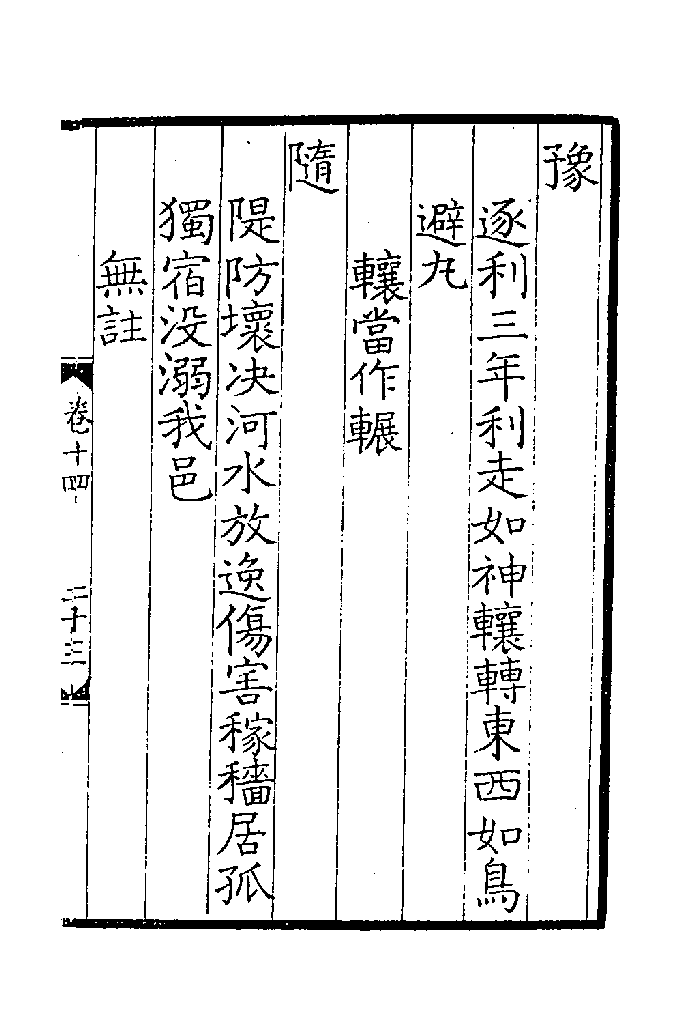 豫
逐利三年利走如神轤轉東西如鳥
避丸
轤當作輾
隨
隄防壞决河水放逸傷害稼穡居孤
獨宿没溺我邑
無註
卷十四
二十三